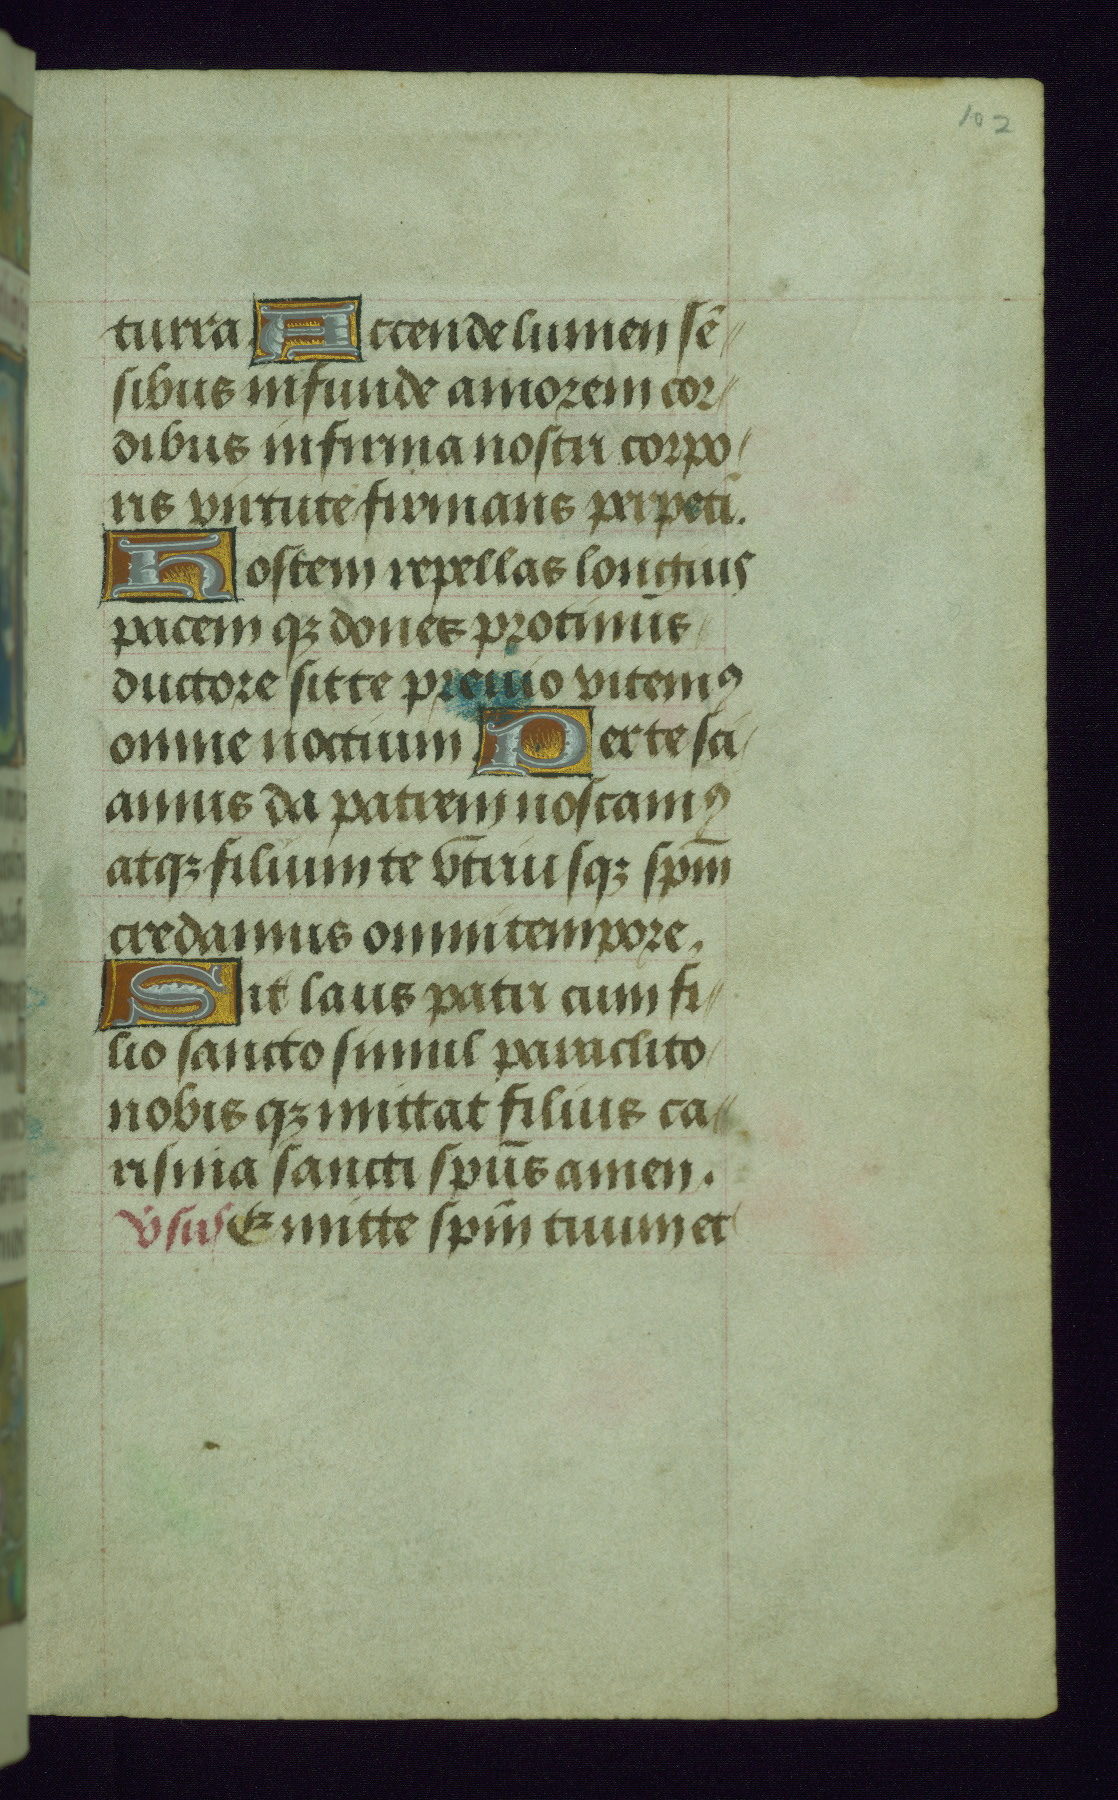 102
turra Accende lumen sē
sibus infunde amorem cor
dibus infirma nostri corpo
ris virtute firmans perpeti.
Hostem repellas longius
pacem qꝫ dones protinus
ductore sitte previo vitemꝯ
omne noctium Per te sci
amus da patrem noscamꝯ
atqꝫ filium te vtriusqꝫ spm̄
credamus omni tempore.
Sit laus patri cum fi
lio sancto simul paraclito
nobis qꝫ mittat filius ca
risma sancti spūs amen.
Vsus Emitte spm̄ tuum et